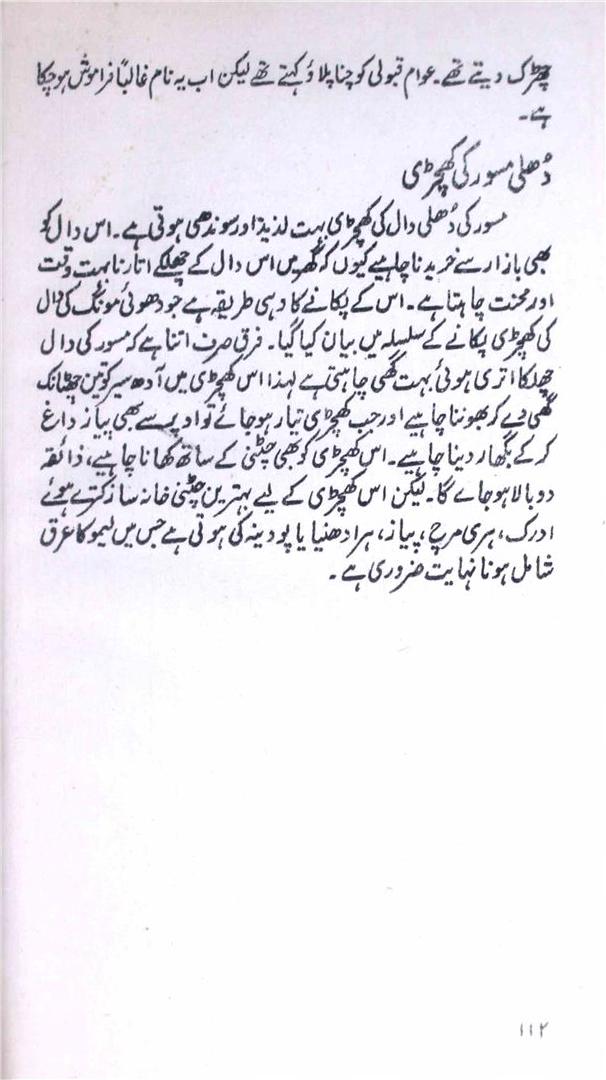 چھڑک دیتے تھے۔ عوام قبولی کو چنا پلاؤ کہتے تھے لیکن اب یہ نام غالباً فراموش ہو چکا
ہے۔
دُھلی مسور کی کھچڑی
مسور کی دُھلی دال کی کھچڑی بہت لذیذ اور سوندھی ہوتی ہے۔ اس دال کو
بھی بازار سے خریدنا چاہیے کیوں کہ گھر میں اس دال کے چھلکے اتارنا بہت وقت
اور محنت چاہتا ہے۔ اس کے پکانے کا وہی طریقہ ہے جو دھوئی مونگ کی دال
کی کھچڑی پکانے کے سلسلہ میں بیان کیا گیا۔ فرق صرف اتنا ہے کہ مسور کی دال
چھلکا اتری ہوئی بہت گھی چاہتی ہے لہٰذا اس کھچڑی میں آدھ سیر کو تین چھٹانک
گھی دے کر بھوننا چاہیے اور جب کھچڑی تیار ہو جائے تو اوپر سے بھی پیاز داغ
کر کے بگھار دینا چاہیے۔ اس کھچڑی کو بھی چٹنی کے ساتھ کھانا چاہیے، ذائقہ
دوبالا ہو جاے گا۔ لیکن اس کھچڑی کے لیے بہترین چٹنی خانہ ساز کترے ہوئے
ادرک، ہری مرچ، پیاز، ہرا دھنیا یا پودینہ کی ہوتی ہے جس میں لیمو کا عرق
شامل ہونا نہایت ضروری ہے۔
۱۱۲